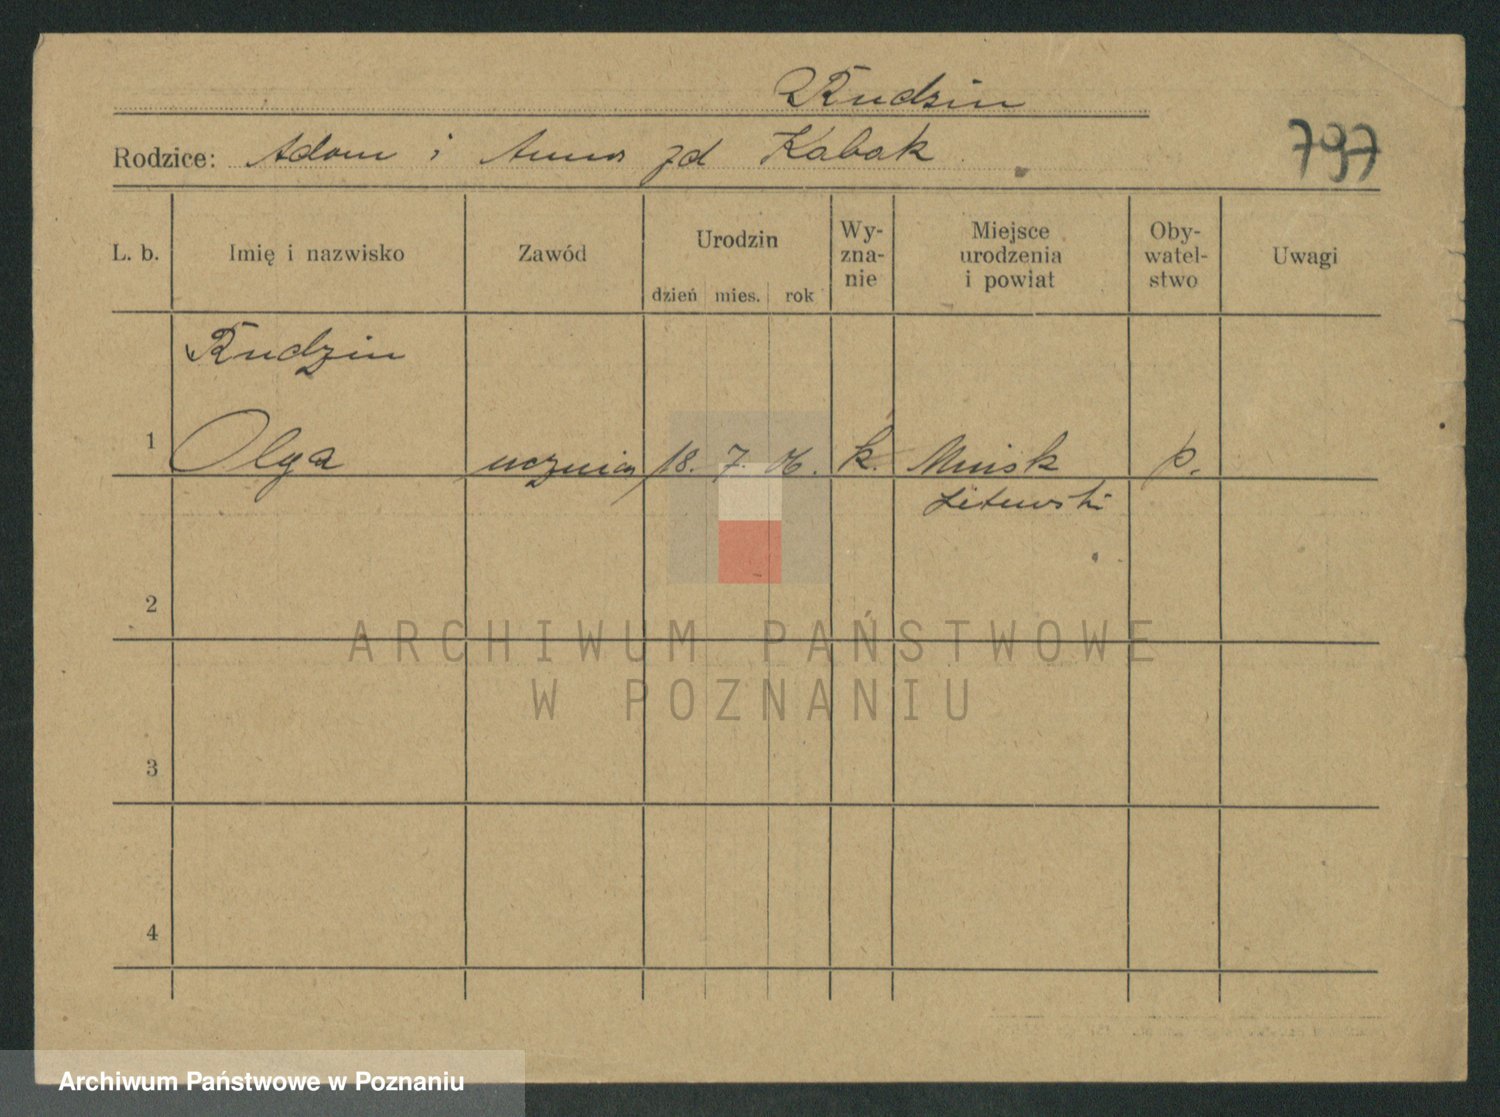 Rudzin
Rodzice: Adam i Anna zd Kabak
797
L. b. Imię i nazwisko Zawód Urodzin Wy-zna-nie Miejsce urodzenia i powiat Oby-watel-stwo Uwagi
dzień mies. rok
Rudzin
1 Olga uczenica 18. 7. 06. k. Mińsk p.
Litewski
2
3
4
ARCHIWUM PAŃSTWOWE
W POZNANIU
Archiwum Państwowe w Poznaniu